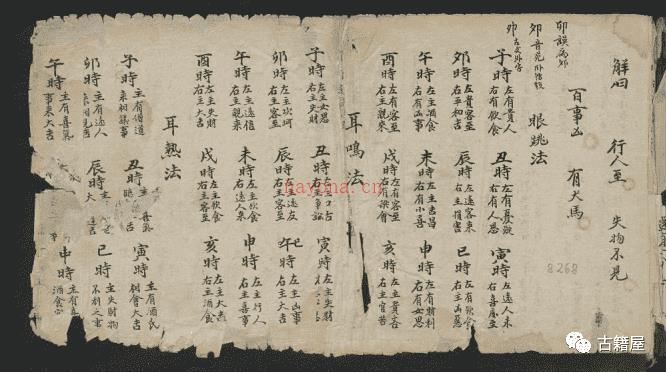 解曰 行人至 失物不見
百事凶 有犬馬
卯誤為夘
夘音苑外傍
卯古文外字
眼跳法
子時 左有貴人 右有飲食
丑時 左有憂疑 右有人思
寅時 左遠人來 右喜屋至
夘時 左貴客至 右平和吉
辰時 左遠客來 右主損害
巳時 左有飲食 右主凶惡
午時 左主酒食 右有凶事
未時 左主吉昌 右有小喜
申時 左有財利 右有女思
酉時 左有客至 右主親來
戌時 左有客至 右有聚會
亥時 左主貴客 右主官
耳鳴法
子時 左主女思 右主失財
丑時 左主口舌 右主爭訟
寅時 左主失財 右主
夘時 左主坎坷 右主客至
辰時 左主遠友 右主客至
巳時 左主凶事 右主大吉
午時 左主遠信 右主親來
未時 左主飲食 右遠人來
申時 左主行人 右主喜事
酉時 左主失財 右主大吉
戌時 左主飲食 右主客至
亥時 左主大吉 右主酒食
耳熱法
子時 主有僧道 來相議事
丑時 主 喜 吉
寅時 主有酒 相會大吉
夘時 主有遠人 來相見吉
辰時 主 大吉
巳時 主失財物 不利之事
午時 主有喜 事來大吉
申時 主有喜 酒食
8268
nayona.cn
古籍屋